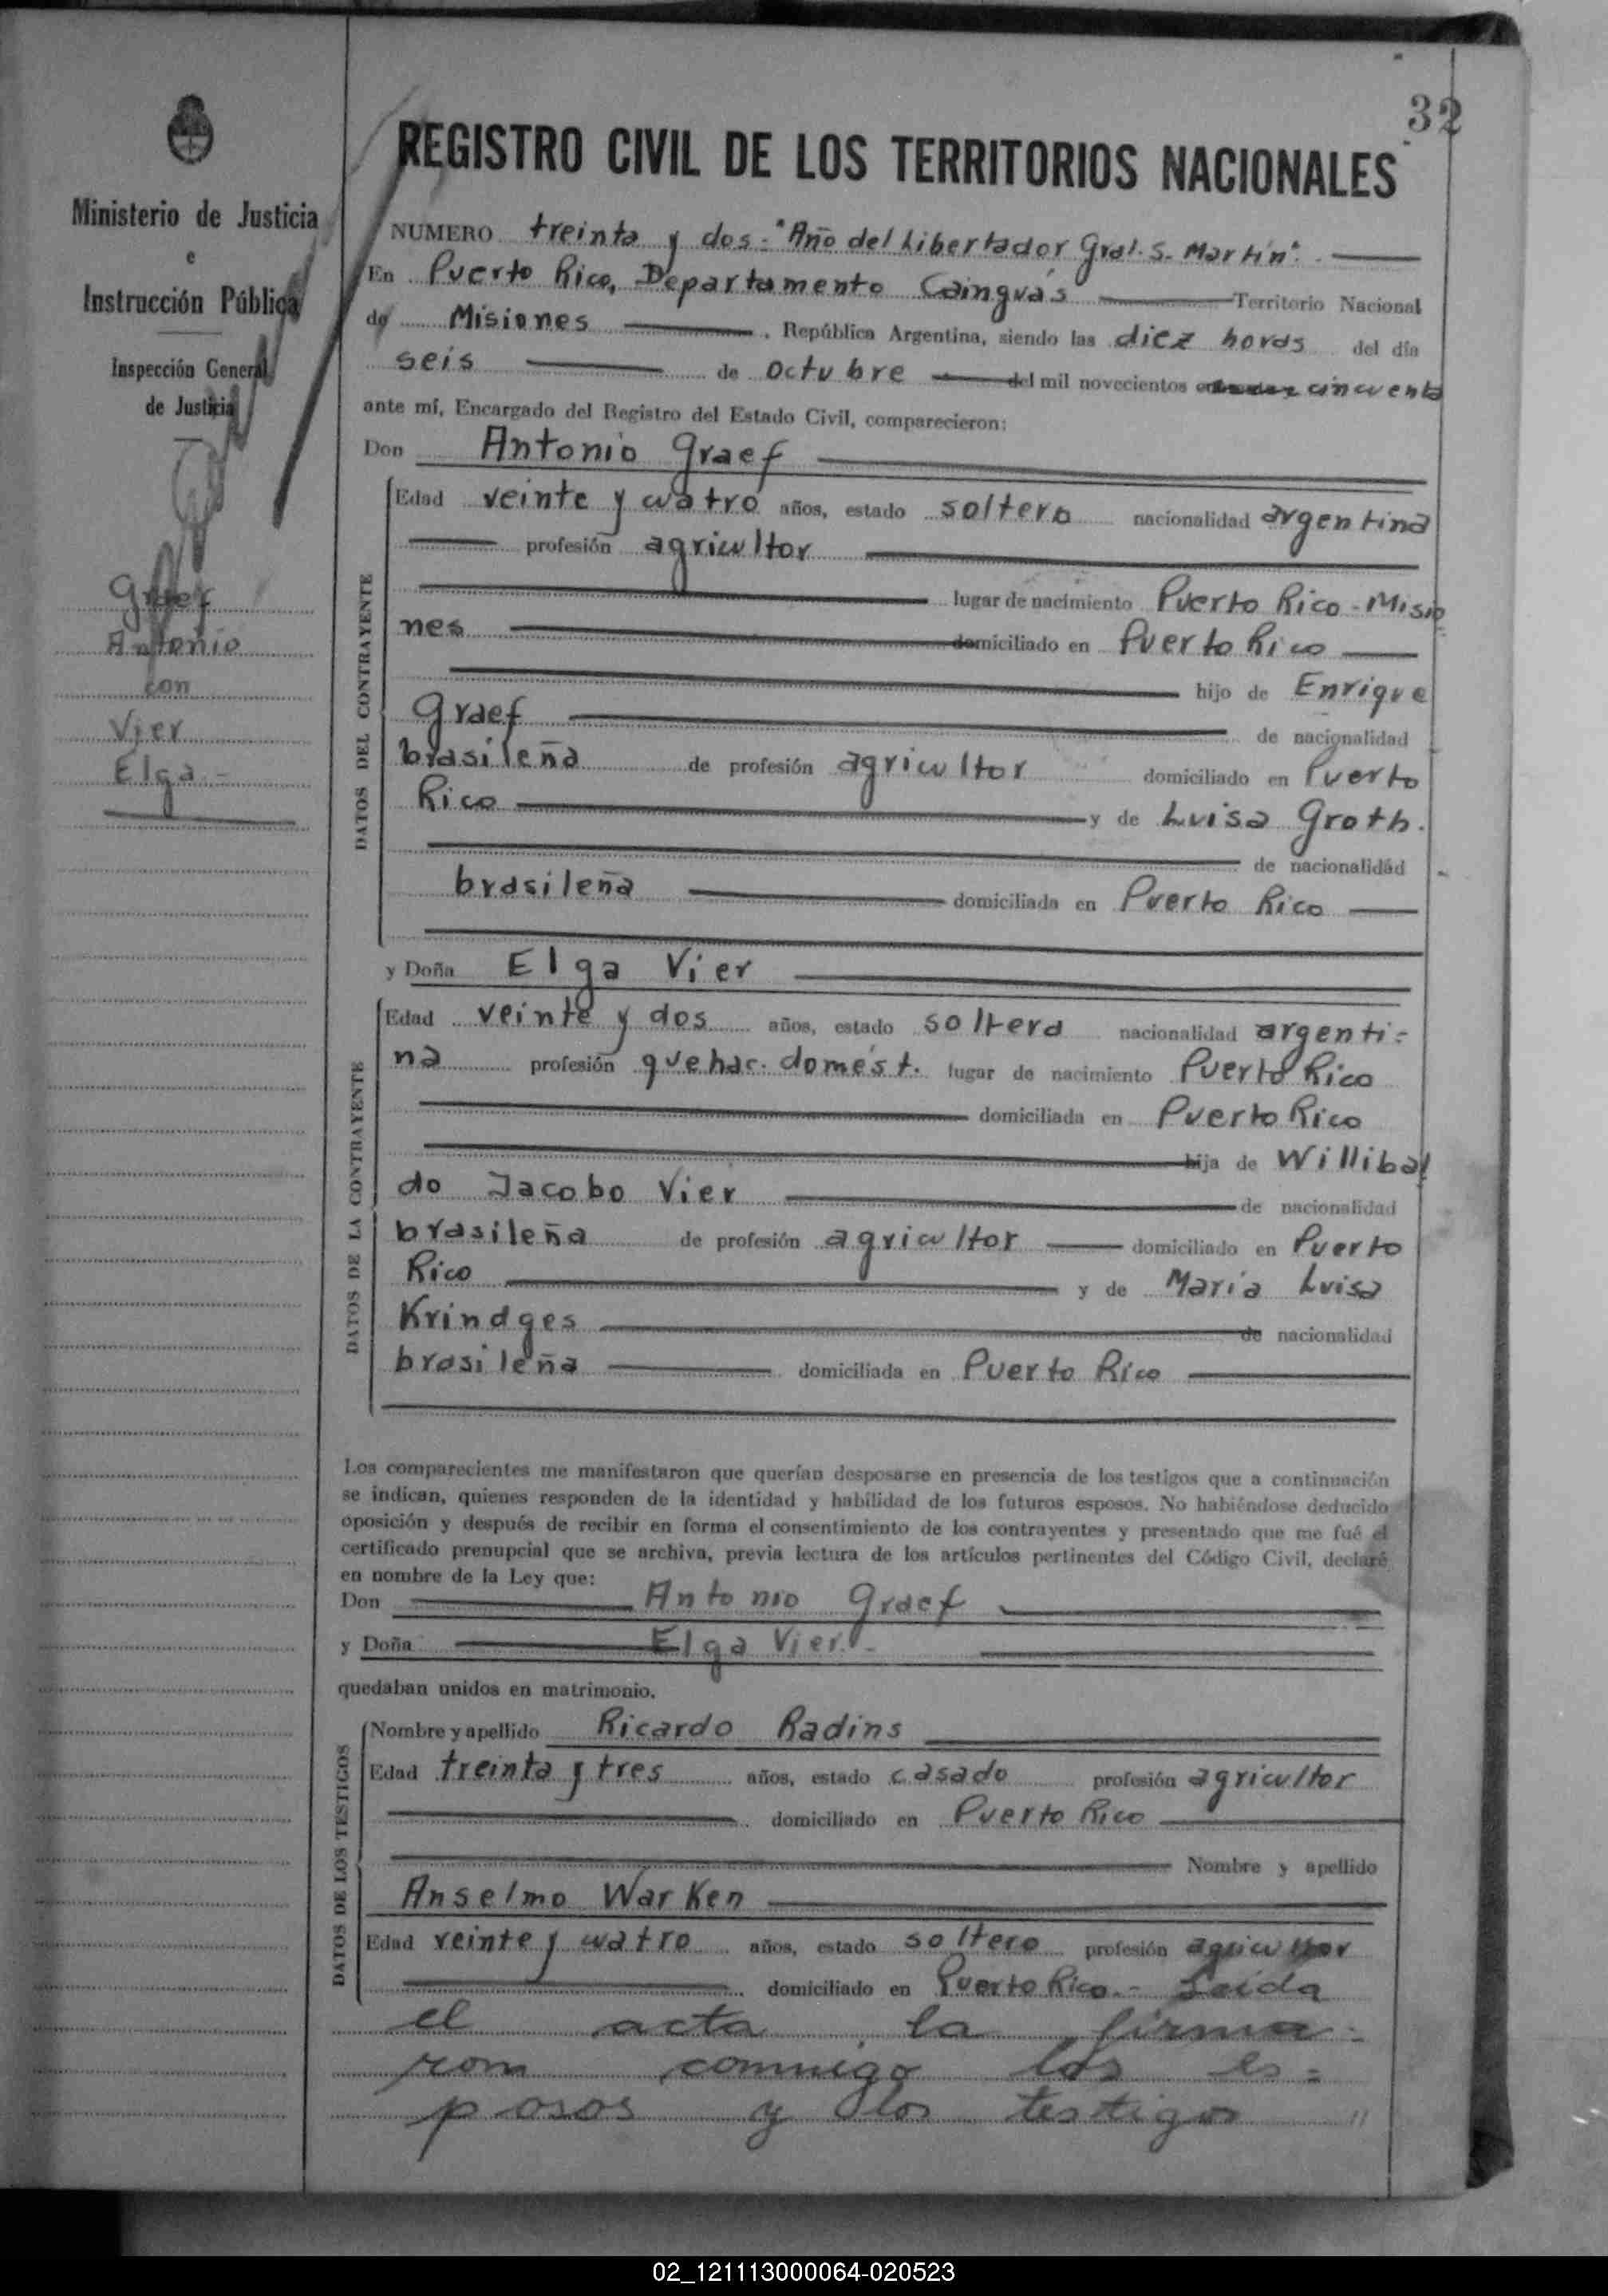 32
Ministerio de Justicia
e
Instrucción Pública
Inspección General
de Justicia
Graef
Antonio
con
Vier
Elga -
REGISTRO CIVIL DE LOS TERRITORIOS NACIONALES
NUMERO treinta y dos - "Año del Libertador Gral. S. Martín".
En Puerto Rico, Departamento Cainguás Territorio Nacional
de Misiones, República Argentina, siendo las diez horas del día
seis de Octubre del mil novecientos cincuenta
ante mí, Encargado del Registro del Estado Civil, comparecieron:
Don Antonio Graef
DATOS DEL CONTRAYENTE
Edad veinte y cuatro años, estado soltero nacionalidad argentina
profesión agricultor
lugar de nacimiento Puerto Rico - Misio
nes domiciliado en Puerto Rico
hijo de Enrique
Graef de nacionalidad
brasileña de profesión agricultor domiciliado en Puerto
Rico y de Luisa Groth.
de nacionalidad
brasileña domiciliada en Puerto Rico
y Doña Elga Vier
DATOS DE LA CONTRAYENTE
Edad veinte y dos años, estado soltera nacionalidad argenti-
na profesión quehac. domést. lugar de nacimiento Puerto Rico
domiciliada en Puerto Rico
hija de Willibal
do Jacobo Vier de nacionalidad
brasileña de profesión agricultor domiciliado en Puerto
Rico y de María Luisa
Krindges de nacionalidad
brasileña domiciliada en Puerto Rico
Los comparecientes me manifestaron que querían desposarse en presencia de los testigos que a continuación
se indican, quienes responden de la identidad y habilidad de los futuros esposos. No habiéndose deducido
oposición y después de recibir en forma el consentimiento de los contrayentes y presentado que me fué el
certificado prenupcial que se archiva, previa lectura de los artículos pertinentes del Código Civil, declaré
en nombre de la Ley que:
Don Antonio Graef
y Doña Elga Vier. -
quedaban unidos en matrimonio.
DATOS DE LOS TESTIGOS
Nombre y apellido Ricardo Radins
Edad treinta y tres años, estado casado profesión agricultor
domiciliado en Puerto Rico
Nombre y apellido
Anselmo Warken
Edad veinte y cuatro años, estado soltero profesión agricultor
domiciliado en Puerto Rico. - Leída
el acta la firma-
ron conmigo los es-
posos y los testigos "
02_121113000064-020523